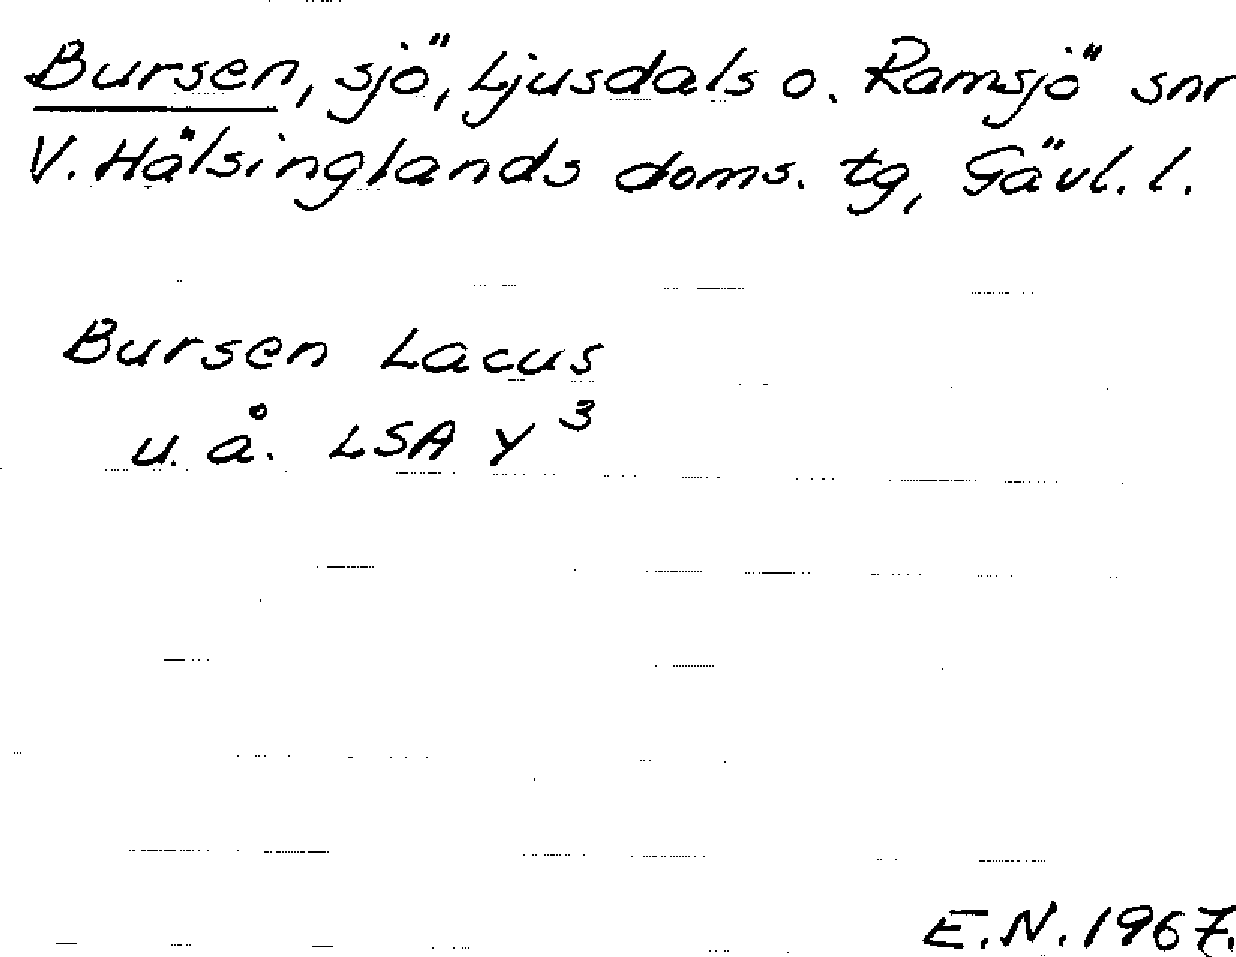 Bursen, sjö, Ljusdals o. Ramsjö snr
V. Hälsinglands doms. tg, Gävl. l.
Bursen Lacus
u. å. LSA Y³
E.N. 1967.